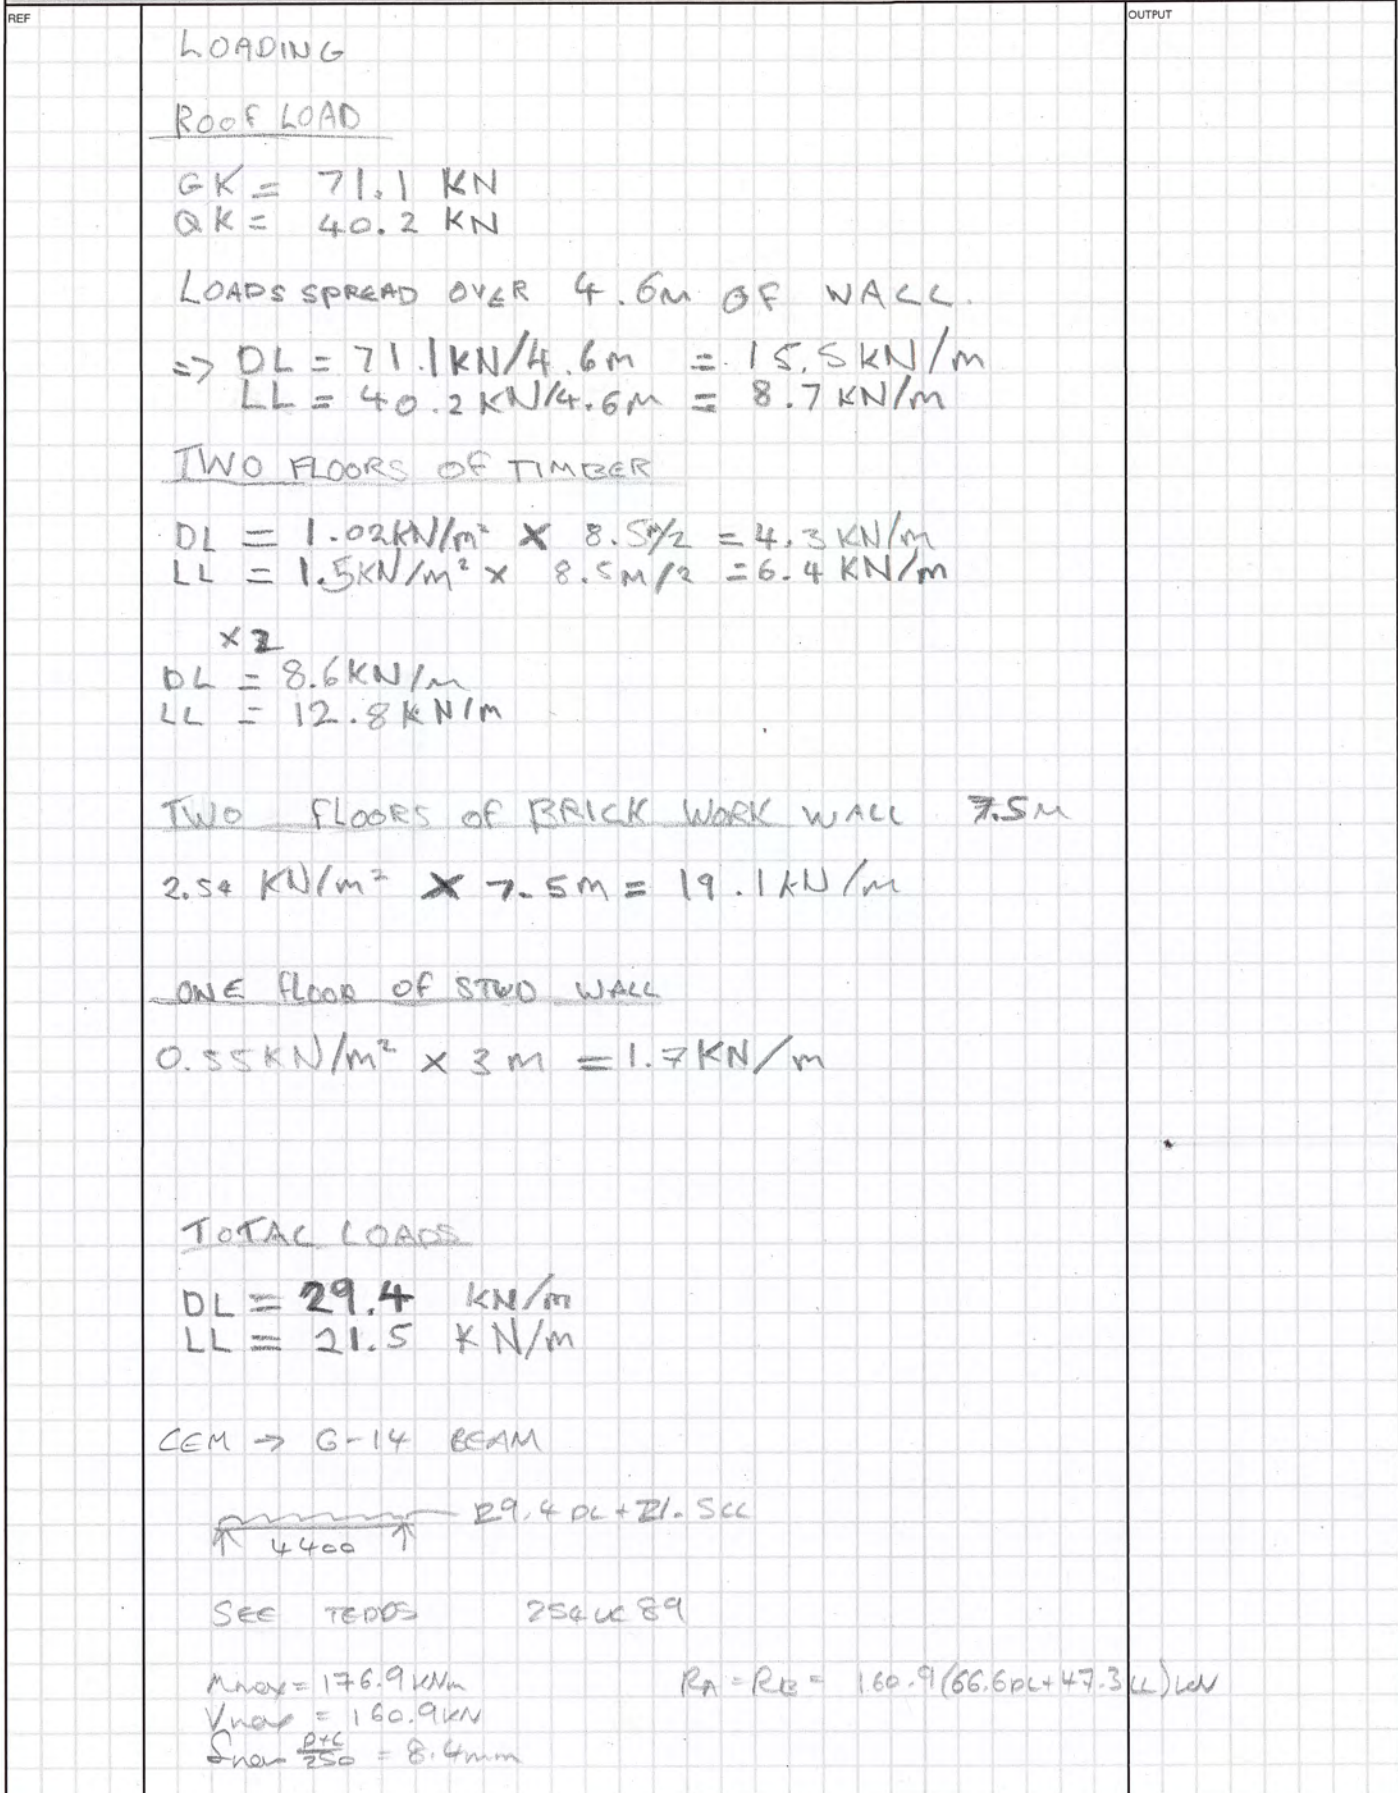 REF
OUTPUT
LOADING
ROOF LOAD
GK = 71.1 KN
QK = 40.2 KN
LOADS SPREAD OVER 4.6m OF WALL.
=> DL = 71.1KN/4.6m = 15.5KN/m
LL = 40.2KN/4.6m = 8.7KN/m
TWO FLOORS OF TIMBER
DL = 1.02KN/m² × 8.5m/2 = 4.3KN/m
LL = 1.5KN/m² × 8.5m/2 = 6.4 KN/m
×2
DL = 8.6KN/m
LL = 12.8KN/m
TWO FLOORS OF BRICK WORK WALL 7.5M
2.54 KN/m² × 7.5m = 19.1KN/m
ONE FLOOR OF STUD WALL
0.55KN/m² × 3m = 1.7KN/m
TOTAL LOADS
DL = 29.4 KN/m
LL = 21.5 KN/m
→ G-14 BEAM
29.4 DL + 21.5 LL
4400
SEE TEDDS 254 UC 89
Mmax = 176.9 kNm RA = RB = 160.9 (66.6DL + 47.3LL) kN
Vmax = 160.9kN
δmax D+L/250 = 8.4mm